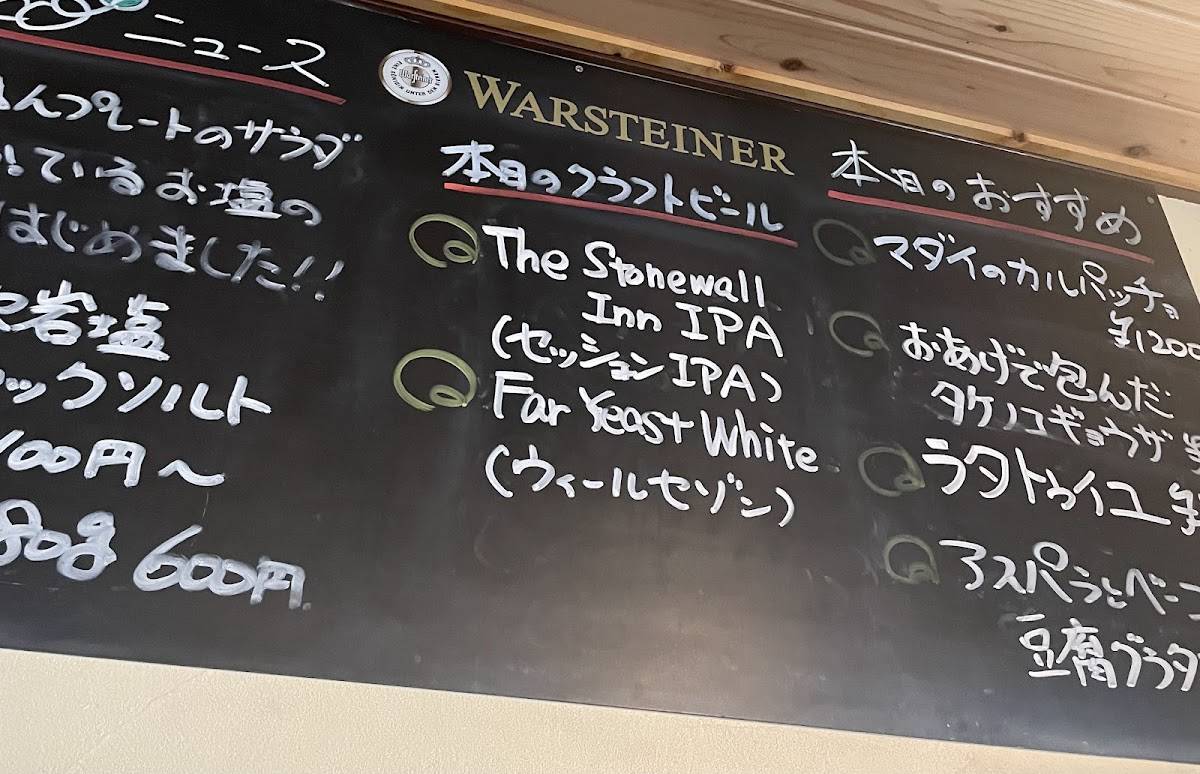 ニュース
プレートのサラダ
ているお塩の
はじめました!!
岩塩
ックソルト
100円～
80g 600円
WARSTEINER
本日のクラフトビール
The Stonewall
Inn IPA
(セッションIPA)
Far Yeast White
(ウィールセゾン)
本日のおすすめ
マダイのカルパッチョ
¥1200
おあげで包んだ
タケノコギョウザ
ラタトゥイユ
アスパラとベー
豆腐グラタ